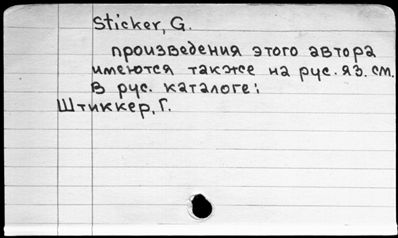 Sticker, G.
произведения этого автора
имеются также на рус. яз. см.
в рус. каталоге:
Штиккер, Г.